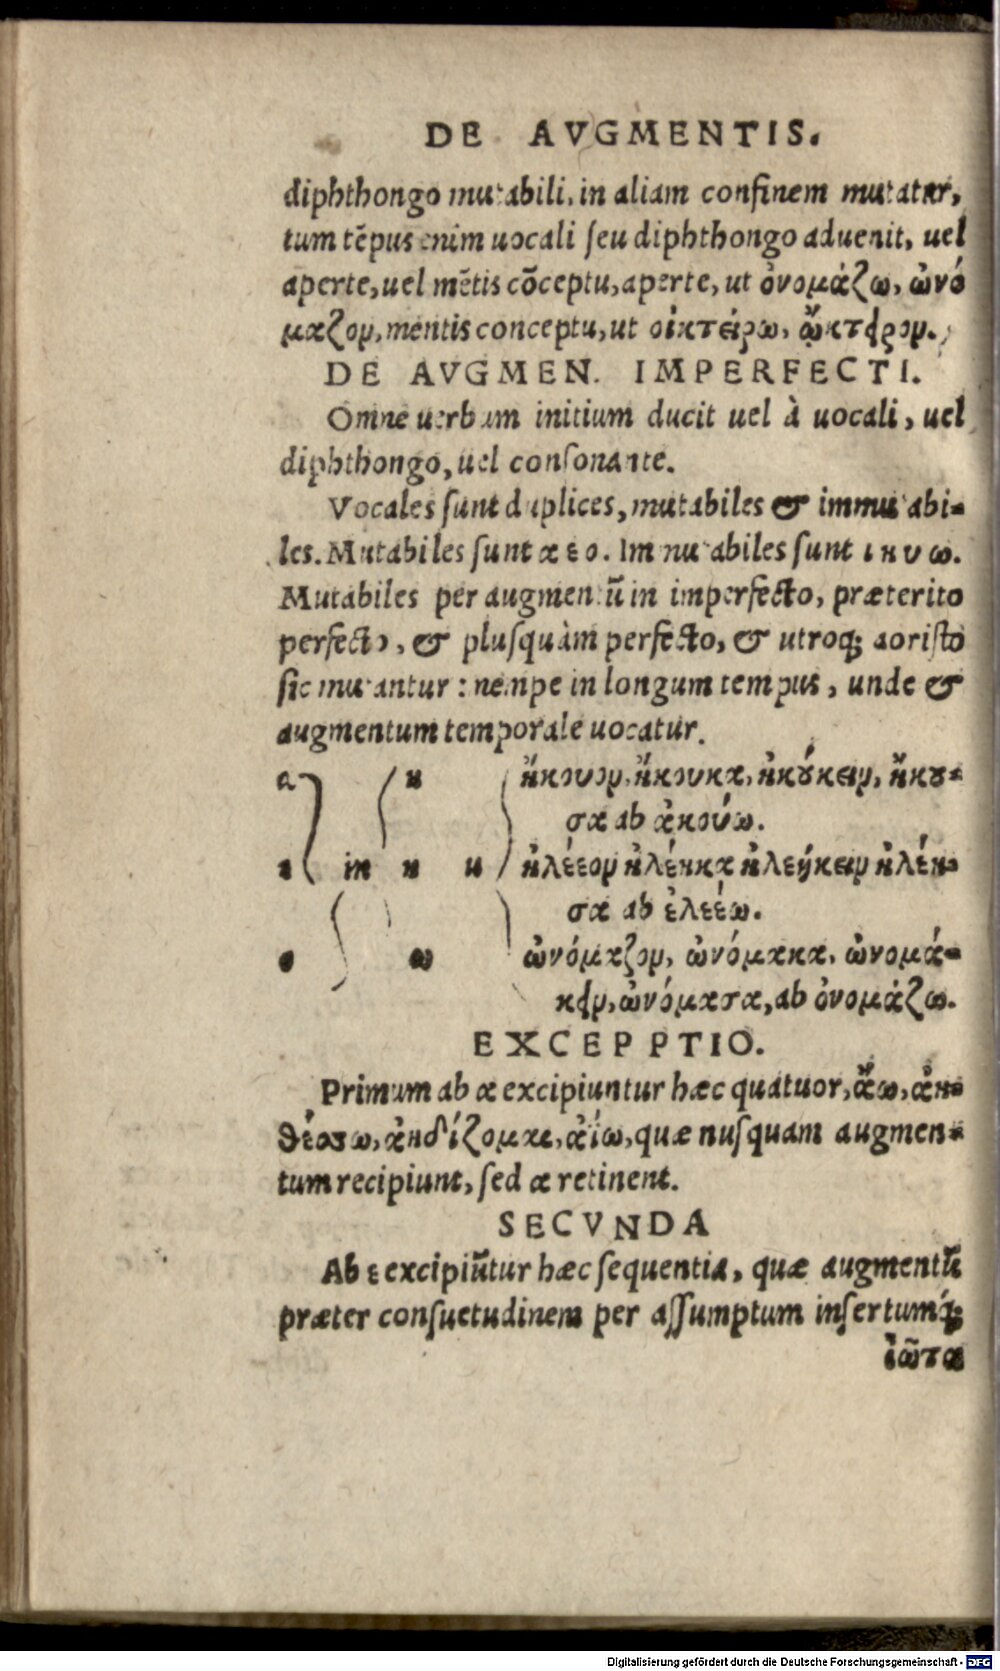 DE AVGMENTIS.
diphthongo mutabili, in aliam confinem mutatur,
tum tẽpus enim uocali ſeu diphthongo aduenit, uel
aperte, uel mẽtis cõceptu, aperte, ut ὀνομάζω, ὠνό
μαζον, mentis conceptu, ut οἰκτείρω, ᾤκτειρον.
DE AVGMEN. IMPERFECTI.
Omne uerbum initium ducit uel à uocali, uel
diphthongo, uel conſonante.
Vocales ſunt duplices, mutabiles & immutabi-
les. Mutabiles ſunt α ε ο. Immutabiles ſunt ι η υ ω.
Mutabiles per augmentũ in imperfecto, præterito
perfecto, & pluſquàm perfecto, & utroq; aoriſto
ſic mutantur: nempe in longum tempus, unde &
augmentum temporale uocatur.
α η ἤκουον, ἤκουκα, ἠκούκειν, ἤκου-
σα ab ἀκούω.
ε in η u ἠλέεον ἠλέηκα ἠλεήκειν ἠλέη-
σα ab ἐλεέω.
ο ω ὠνόμαζον, ὠνόμακα, ὠνομά-
κειν, ὠνόμασα, ab ὀνομάζω.
EXCEPPTIO.
Primum ab α excipiuntur hæc quatuor, ἄω, ἀη-
θέσσω, ἀηδίζομαι, ἀΐω, quæ nuſquam augmen-
tum recipiunt, ſed α retinent.
SECVNDA
Ab ε excipiũtur hæc ſequentia, quæ augmentũ
præter conſuetudinem per aſſumptum inſertumq́;
ἰῶτα
Digitalisierung gefördert durch die Deutsche Forschungsgemeinschaft - DFG